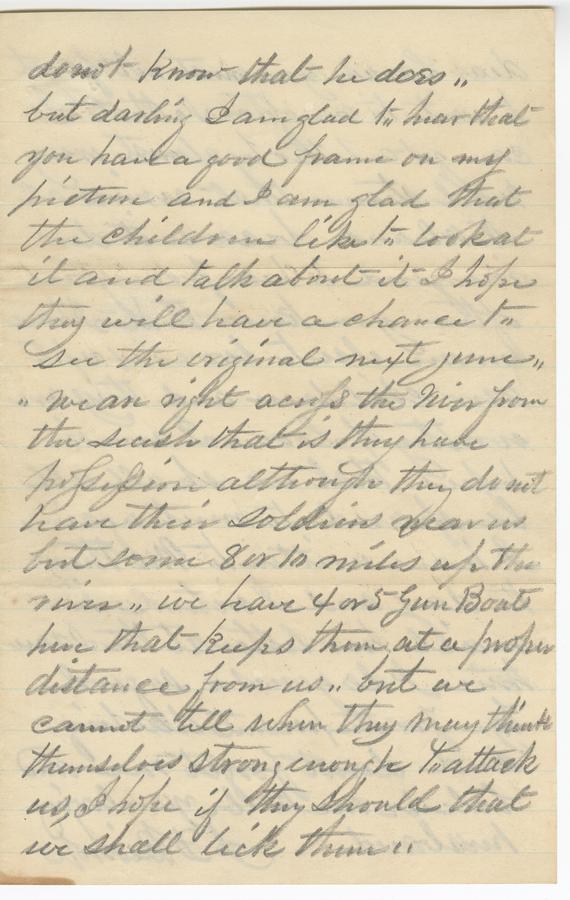 donot know that he does,,
but darling I am glad to hear that
you have a good frame on my
picture and I am glad that
the children like to look at
it and talk about it I hope
they will have a chance to
see the original next june,,
,, we are right across the River from
the secesh that is they have
possession although they do not
have their soldiers near us
but some 8 or 10 miles up the
river,, we have 4 or 5 Gun Boats
here that keeps them at a proper
distance from us,, but we
cannot tell when they may think
themselves strong enough to attack
us, I hope if they should that
we shall lick them,,